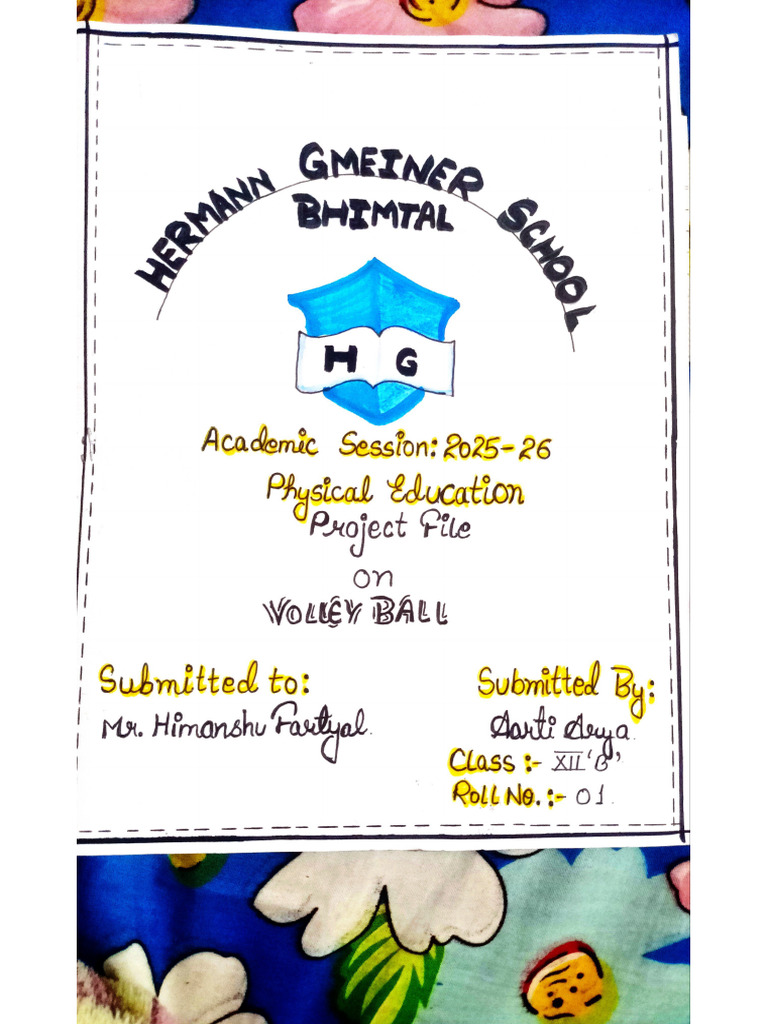 HERMANN GMEINER SCHOOL
BHIMTAL
H G
Academic Session: 2025-26
Physical Education
Project File
on
VOLLEY BALL
Submitted to:
Mr. Himanshu Fartyal.
Submitted By:
Aarti Arya.
Class :- XII 'B'
Roll No. :- 01.